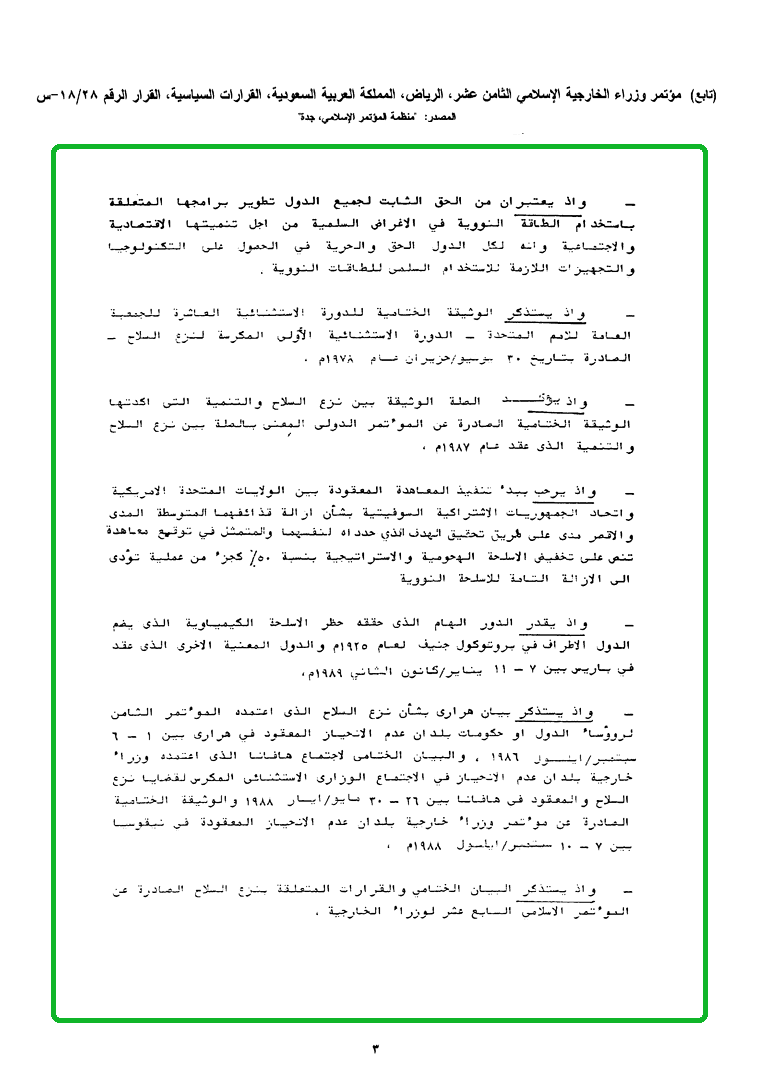 (تابع) مؤتمر وزراء الخارجية الإسلامي الثامن عشر، الرياض، المملكة العربية السعودية، القرارات السياسية، القرار الرقم ١٨/٢٨-س
المصدر: "منظمة المؤتمر الإسلامي، جدة"
ـ واذ يعتبران من الحق الثابت لجميع الدول تطوير برامجها المتعلقة
باستخدام الطاقة النووية في الاغراض السلمية من اجل تنميتها الاقتصادية
والاجتماعية وانه لكل الدول الحق والحرية في الحصول على التكنولوجيا
والتجهيزات اللازمة للاستخدام السلمى للطاقات النووية .
ـ واذ يستذكر الوثيقة الختامية للدورة الاستثنائية العاشرة للجمعية
العامة للامم المتحدة ـ الدورة الاستثنائية الأولى المكرسة لنزع السلاح ـ
الصادرة بتاريخ ٣٠ /حزيران عام ١٩٧٨م .
ـ واذ الصلة الوثيقة بين نزع السلاح والتنمية التى اكدتها
الوثيقة الختامية الصادرة عن الموءتمر الدولى المعنى بالصلة بين نزع السلاح
والتنمية الذى عقد عام ١٩٨٧م ،
ـ واذ يرحب ببدء تنفيذ المعاهدة المعقودة بين الولايات المتحدة الامريكية
واتحاد الجمهوريات الاشتراكية السوفيتية بشأن ازالة قذائفهما المتوسطة المدى
والاقصر مدى على طريق تحقيق الهدف الذي حدداه لنفسهما والمتمثل في توقيع معاهدة
تنص على تخفيض الاسلحة الهجومية والاستراتيجية بنسبة ٥٠٪ كجزء من عملية توًدى
الى الازالة التامة للاسلحة النووية
ـ واذ يقدر الدور الهام الذى حققه حظر الاسلحة الكيمياوية الذى يضم
الدول الاطراف في بروتوكول جنيف لعام ١٩٢٥م والدول المعنية الاخرى الذى عقد
في باريس بين ٧ ـ ١١ يناير/كانون الثاني ١٩٨٩م،
ـ واذ يستذكر بيان هرارى بشأن نزع السلاح الذى اعتمده الموءتمر الثامن
لروءساء الدول او حكومات بلدان عدم الانحياز المعقود في هرارى بين ١ ـ ٦
سبتمبر/ايلول ١٩٨٦ ، والبيان الختامى لاجتماع هافانا الذى اعتمده وزراء
خارجية بلدان عدم الانحياز في الاجتماع الوزارى الاستثنائى المكرس لقضايا نزع
السلاح والمعقود فى هافانا بين ٢٦ ـ ٣٠ مايو/ايار ١٩٨٨ والوثيقة الختامية
الصادرة عن موءتمر وزراء خارجية بلدان عدم الانحياز المعقودة فى نيقوسا
بين ٧ ـ ١٠ سبتمبر/ايلول ١٩٨٨م ،
ـ واذ يستذكر البيان الختامي والقرارات المتعلقة بنزع السلاح الصادرة عن
الموءتمر الاسلامى السابع عشر لوزراء الخارجية .
٣